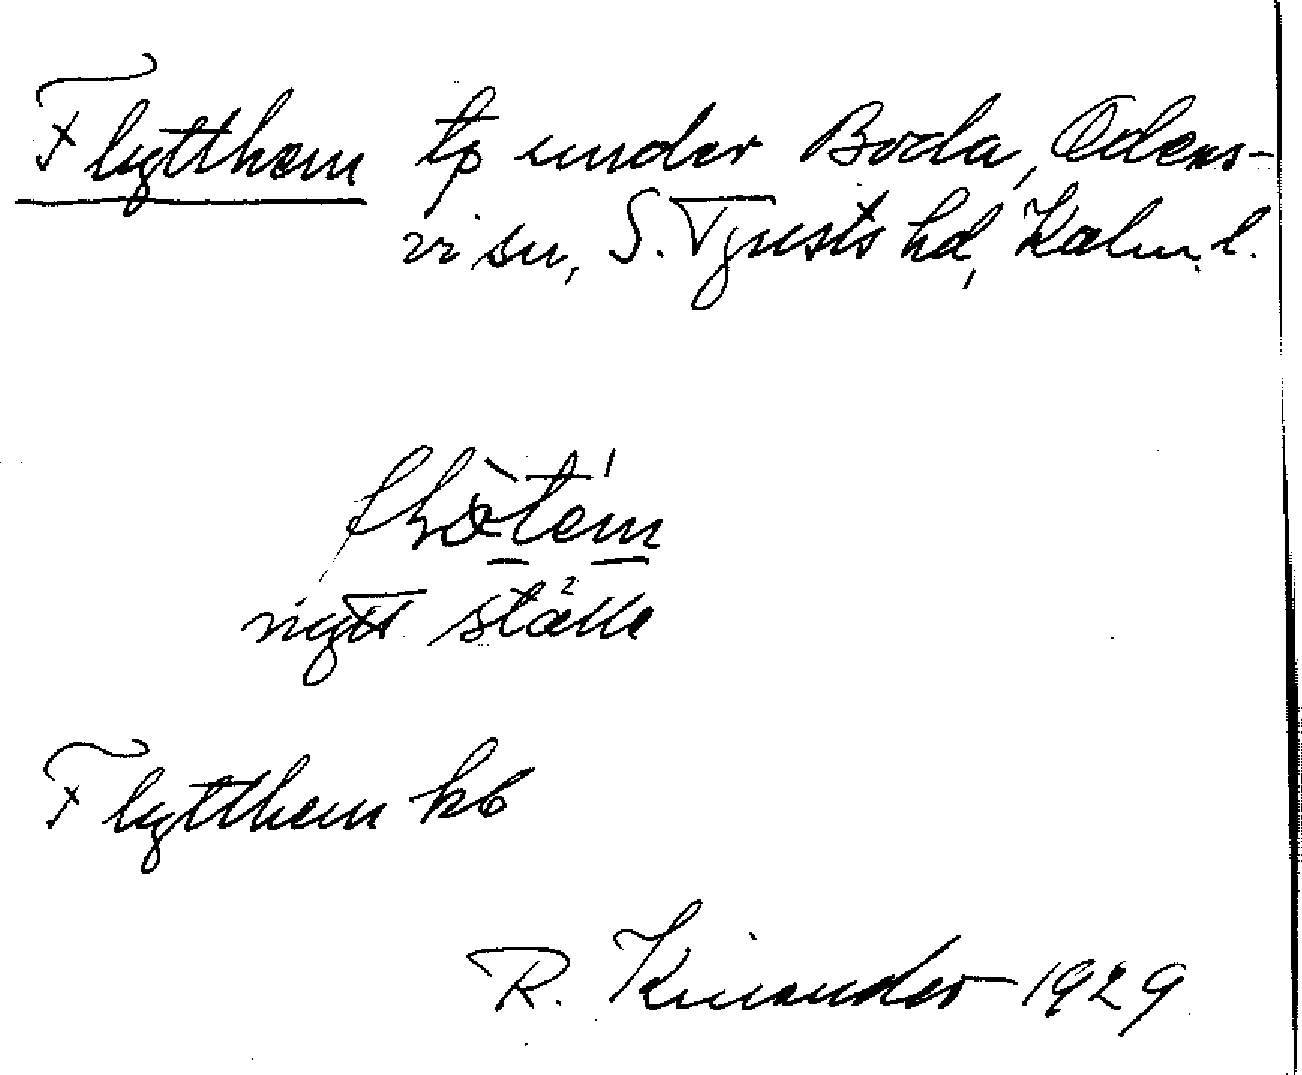 Flytthem tp under Boda, Odens-
vi sn, S. Tjusts hd, Kalm. l.
nytt ställe
Flytthem kb
R. Kinander 1929